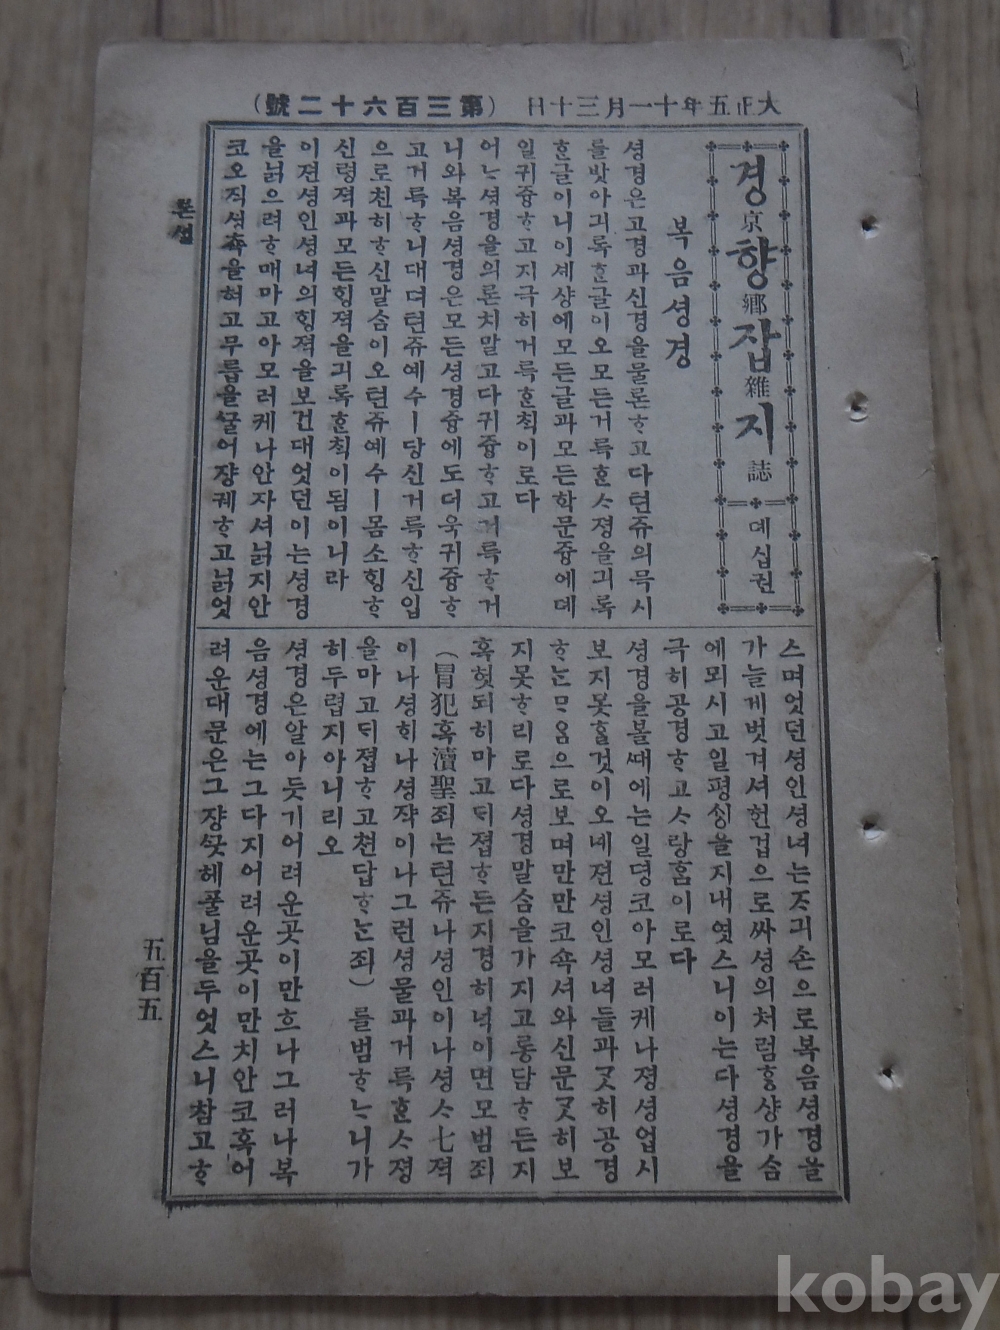 大正五年十一月三十日 (第三百六十二號)
경京향鄕잡雜지誌 뎨십권
복음셩경
셩경은고경과신경을물론ᄒᆞ고다텬쥬의믁시
를밧아긔록ᄒᆞᆫ글이오모든거륵ᄒᆞᆫᄉᆞ졍을긔록
ᄒᆞᆫ글이니이셰샹에모든글과모든학문즁에뎨
일귀즁ᄒᆞ고지극히거륵ᄒᆞᆫ칙이로다
어ᄂᆞ셩경을의론치말고다귀즁ᄒᆞ고거륵ᄒᆞ거
니와복음셩경은모든셩경즁에도더욱귀즁ᄒᆞ
고거륵ᄒᆞ니대뎌텬쥬예수ㅣ당신거륵ᄒᆞ신입
으로친히ᄒᆞ신말ᄉᆞᆷ이오텬쥬예수ㅣ몸소ᄒᆡᆼᄒᆞ
신령젹과모든ᄒᆡᆼ젹을긔록ᄒᆞᆫ칙이됨이니라
이젼셩인셩녀의ᄒᆡᆼ젹을보건대엇던이는셩경
을낡으려ᄒᆞᆯ매마고아모러케나안자셔낡지안
코오직셧ᄌᆞᆨ을혀고무릅을ᄭᅮᆯ어쟝궤ᄒᆞ고낡엇
스며엇던셩인셩녀는ᄌᆞ긔손으로복음셩경을
가늘게벗겨셔헌겁으로싸셩의처럼ᄒᆞᆼ샹가슴
에뫼시고일평ᄉᆡᆼ을지내엿스니이는다셩경을
극히공경ᄒᆞ고ᄉᆞ랑홈이로다
셩경을볼ᄯᅢ에는일뎡코아모러케나졍셩업시
보지못ᄒᆞᆯ것이오녜젼셩인셩녀들과ᄀᆞᆺ히공경
ᄒᆞᄂᆞᆫᄆᆞᄋᆞᆷ으로보며만만코쇽셔와신문ᄀᆞᆺ히보
지못ᄒᆞ리로다셩경말ᄉᆞᆷ을가지고롱담ᄒᆞ든지
혹헛되히마고ᄃᆡ졉ᄒᆞ든지경히넉이면모범죄
(冒犯혹瀆聖죄는텬쥬나셩인이나셩ᄉᆞ七젹
이나셩회나셩쟉이나그런셩물과거륵ᄒᆞᆫᄉᆞ졍
을마고ᄃᆡ졉ᄒᆞ고쳔답ᄒᆞᄂᆞᆫ죄)를범ᄒᆞᄂᆞ니가
히두렵지아니리오
셩경은알아듯기어려운곳이만흐나그러나복
음셩경에는그다지어려운곳이만치안코혹어
려운대문은그쟝ᄭᅳᆺ헤풀님을두엇스니참고ᄒᆞ
론셜
五百五
kobay